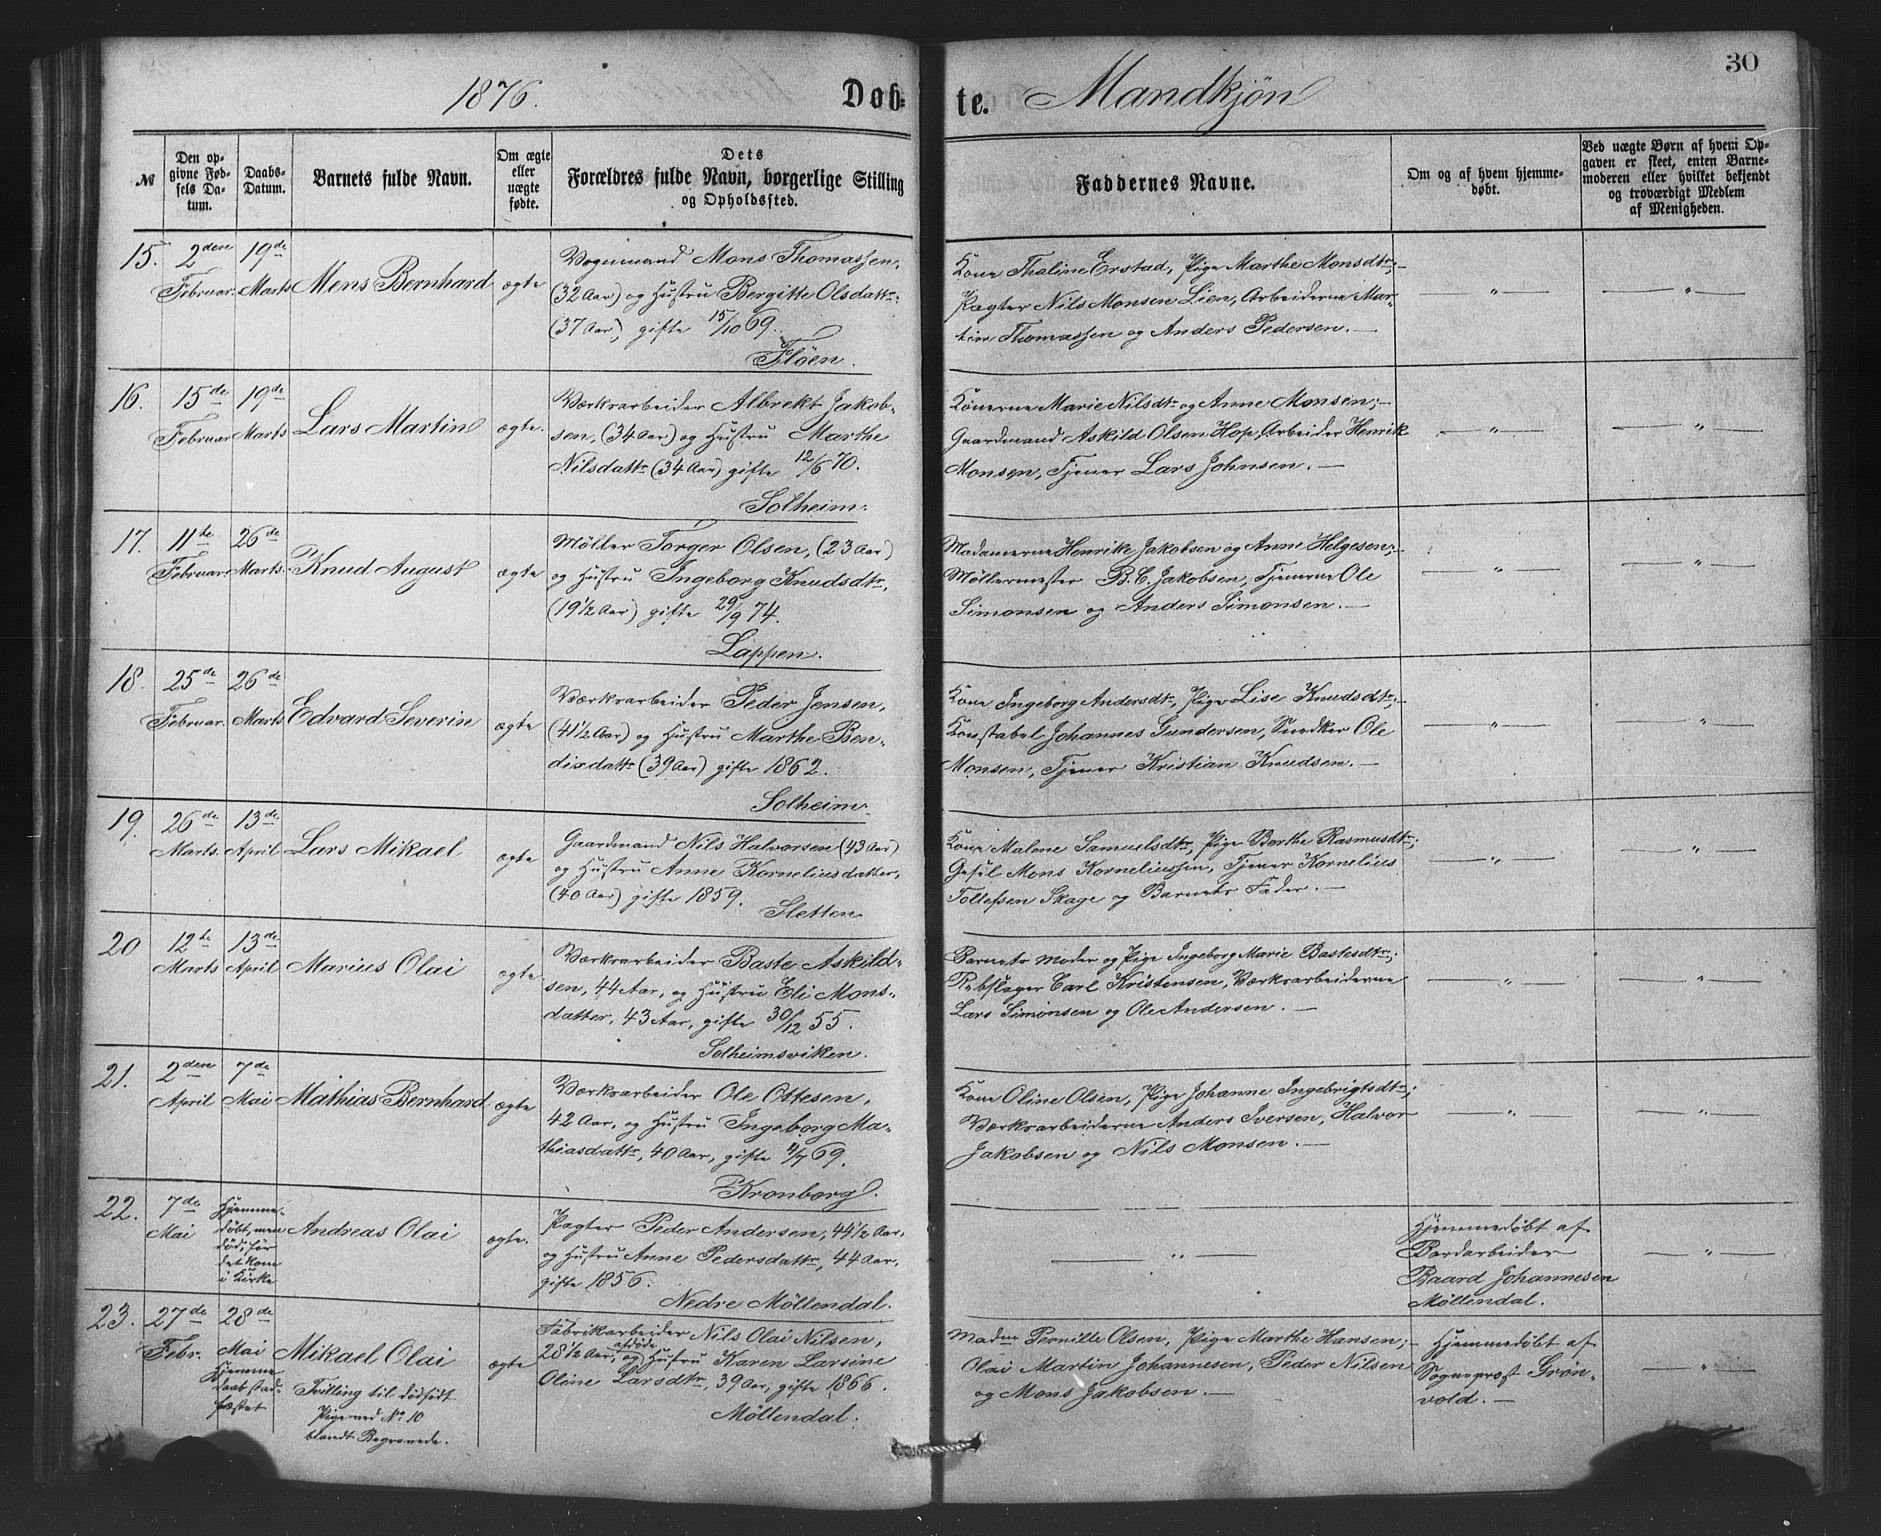 1876.
Døb=
te.
Mandkjøn
30
№
Den op-
givne Fød-
sels Da-
tum.
Daabs-
Datum.
Barnets fulde Navn.
Om ægte
eller
uægte
fødte.
Dets
Forældres fulde Navn, borgerlige Stilling
og Opholdssted.
Faddernes Navne.
Om og af hvem hjemme-
døbt.
Ved uægte Børn af hvem Op-
gaven er skeet, enten Barne-
moderen eller hvilket bekjendt
og troværdigt Medlem
af Menigheden.
15. 2den Februar. 19de Marts Mons Bernhard ægte
Vognmand Mons Thomassen,
(32 Aar) og Hustru Bergitte Olsdattr.
(37 Aar), gifte 15/10 69.
Fløen.
Kone Thaline Erstad, Pige Marthe Monsdtr;
Pagter Nils Monsen Lien, Arbeiderne Mar-
tin Thomassen og Anders Pedersen. —
— " —
— " —
16. 15de Februar 19de Marts Lars Martin ægte.
Værksarbeider Albrekt Jakob-
sen, (34 Aar) og Hustru Marthe
Nilsdattr (34 Aar) gifte 12/6 70.
Solheim.
Konerne Marie Nilsdtr og Anne Monsen; —
Gaardmand Askild Olsen Hop, Arbeider Henrik
Monsen, Tjener Lars Johnsen. —
— " —
— " —
17. 11te Februar 26de Marts. Knud August ægte
Møller Torger Olsen, (23 Aar)
og Hustru Ingeborg Knudsdtr,
(19 1/2 Aar) gifte 29/9 74.
Lappen.
Madamerne Henrike Jakobsen og Anne Helgesen; —
Møllermester B. C. Jakobsen, Tjenerne Ole
Simonsen og Anders Simonsen. —
— " —
— " —
18. 25de Februar. 26de Marts Edvard Severin ægte
Værksarbeider Peder Jensen,
(41 1/2 Aar) og Hustru Marthe Ben-
dixdattr (39 Aar) gifte 1862.
Solheim.
Kone Ingeborg Andersdtr, Pige Lise Knudsdtr; —
Konstabel Johannes Gundersen, Snedker Ole
Monsen, Tjener Kristian Knudsen. —
— " —
— " —
19. 26de Marts. 13de April Lars Mikael ægte
Gaardmand Nils Halvorsen (43 Aar)
og Hustru Anne Korneliusdatter,
(40 Aar) gifte 1859.
Sletten
Kone Malene Samuelsdtr, Pige Berthe Rasmusdtr;
Gefil Mons Korneliussen, Tjener Kornelius
Tollefsen Skage og Barnets Fader. —
— " —
— " —
20 12te Marts 13de April Marius Olai ægte.
Værksarbeider Baste Askild-
sen, 44 Aar, og Hustru Eli Mons-
datter, 43 Aar, gifte 30/12 55.
Solheimsviken.
Barnets Moder og Pige Ingeborg Marie Bastesdtr;
Rebslager Carl Kristensen, Værksarbeiderne
Lars Simonsen og Ole Andersen. —
— " —
— " —
21. 2den April 7de Mai Mathias Bernhard. ægte
Værksarbeider Ole Ottesen,
42 Aar, og Hustru Ingeborg Ma-
thiasdattr, 40 Aar, gifte 4/7 69.
Kronborg.
Kone Oline Olsen, Pige Johanne Ingebrigtsdtr;
Værksarbeiderne Anders Iversen, Halvor
Jakobsen og Nils Monsen. —
— " —
— " —
22. 7de Mai
Hjemme-
døbt, men
død, før
det kom
i Kirke
Andreas Olai ægte.
Pagter Peder Andersen, 44 1/2 Aar,
og Hustru Anne Pedersdattr, 44 Aar,
gifte 1856.
Nedre Möllendal.
— " —
Hjemmedøbt af
Baard Johannesen
Möllendal.
— " —
23. 27de Febr. 28de Mai
Hjemme-
daab stad-
fæstet
Mikael Olai ægte
Tvilling til dødfødt
Pige ved No 10
blandt Begravede.
Fabrikarbeider Nils Olai Nilsen,
28 1/2 Aar, og afdøde Hustru Karen Larsine
Oline Larsdtr, 39 Aar, gifte 1866.
Möllendal.
Madm Pernille Olsen, Pige Marthe Hansen; —
Olai Martin Johannesen, Peder Nilsen
og Mons Jakobsen. —
Hjemmedøbt af
Sogneprest Grøn-
vold. —
— " —